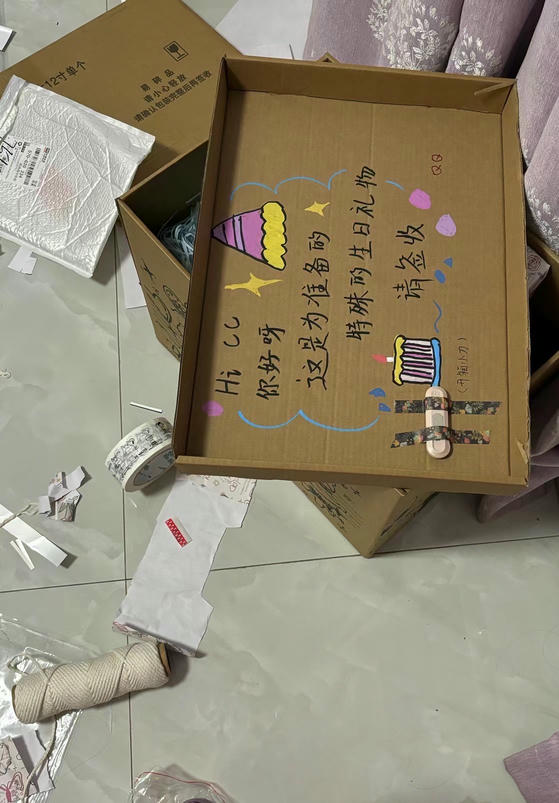 12寸单个
易碎品
请小心轻放
请确认包装完整后再签收
Hi CC
你好呀
这是为准备的
特殊的生日礼物
请签收
QQ
(开箱小刀)